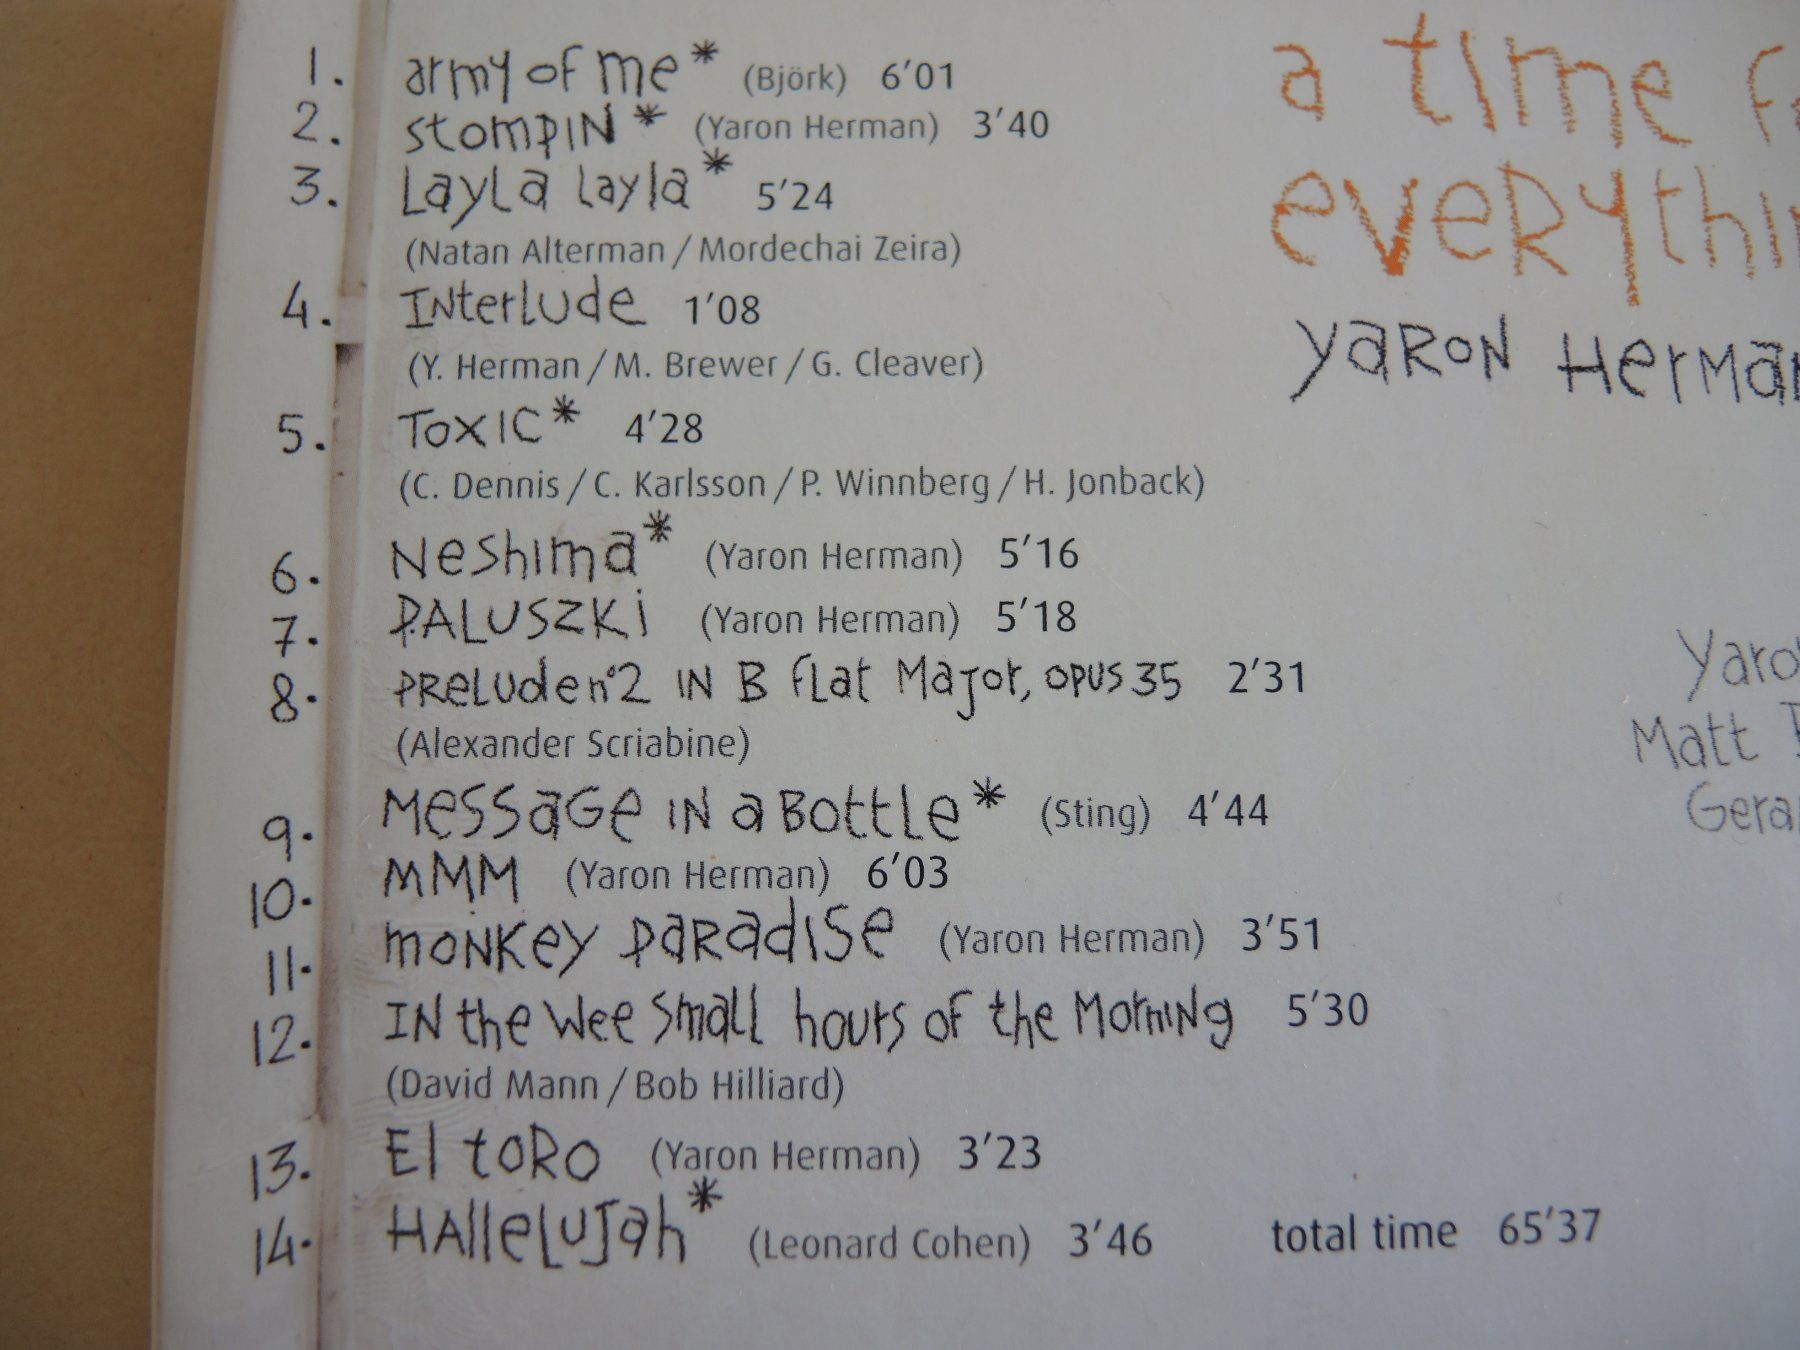 1. army of me* (Björk) 6'01
2. stompIN* (Yaron Herman) 3'40
3. Layla Layla* 5'24
(Natan Alterman / Mordechai Zeira)
4. INterlude 1'08
(Y. Herman / M. Brewer / G. Cleaver)
5. TOXIC* 4'28
(C. Dennis / C. Karlsson / P. Winnberg / H. Jonback)
6. Neshima* (Yaron Herman) 5'16
7. PALUSZKi (Yaron Herman) 5'18
8. PReLude n°2 IN B fLat Major, opus 35 2'31
(Alexander Scriabine)
9. Message IN a Bottle* (Sting) 4'44
10. MMM (Yaron Herman) 6'03
11. monKey paRadise (Yaron Herman) 3'51
12. IN the Wee small hours of the MorniNg 5'30
(David Mann / Bob Hilliard)
13. El toRo (Yaron Herman) 3'23
14. HAlleLuJah* (Leonard Cohen) 3'46 total time 65'37
a time
everythi
yaRoN Herma
Yaro
Matt
Gera